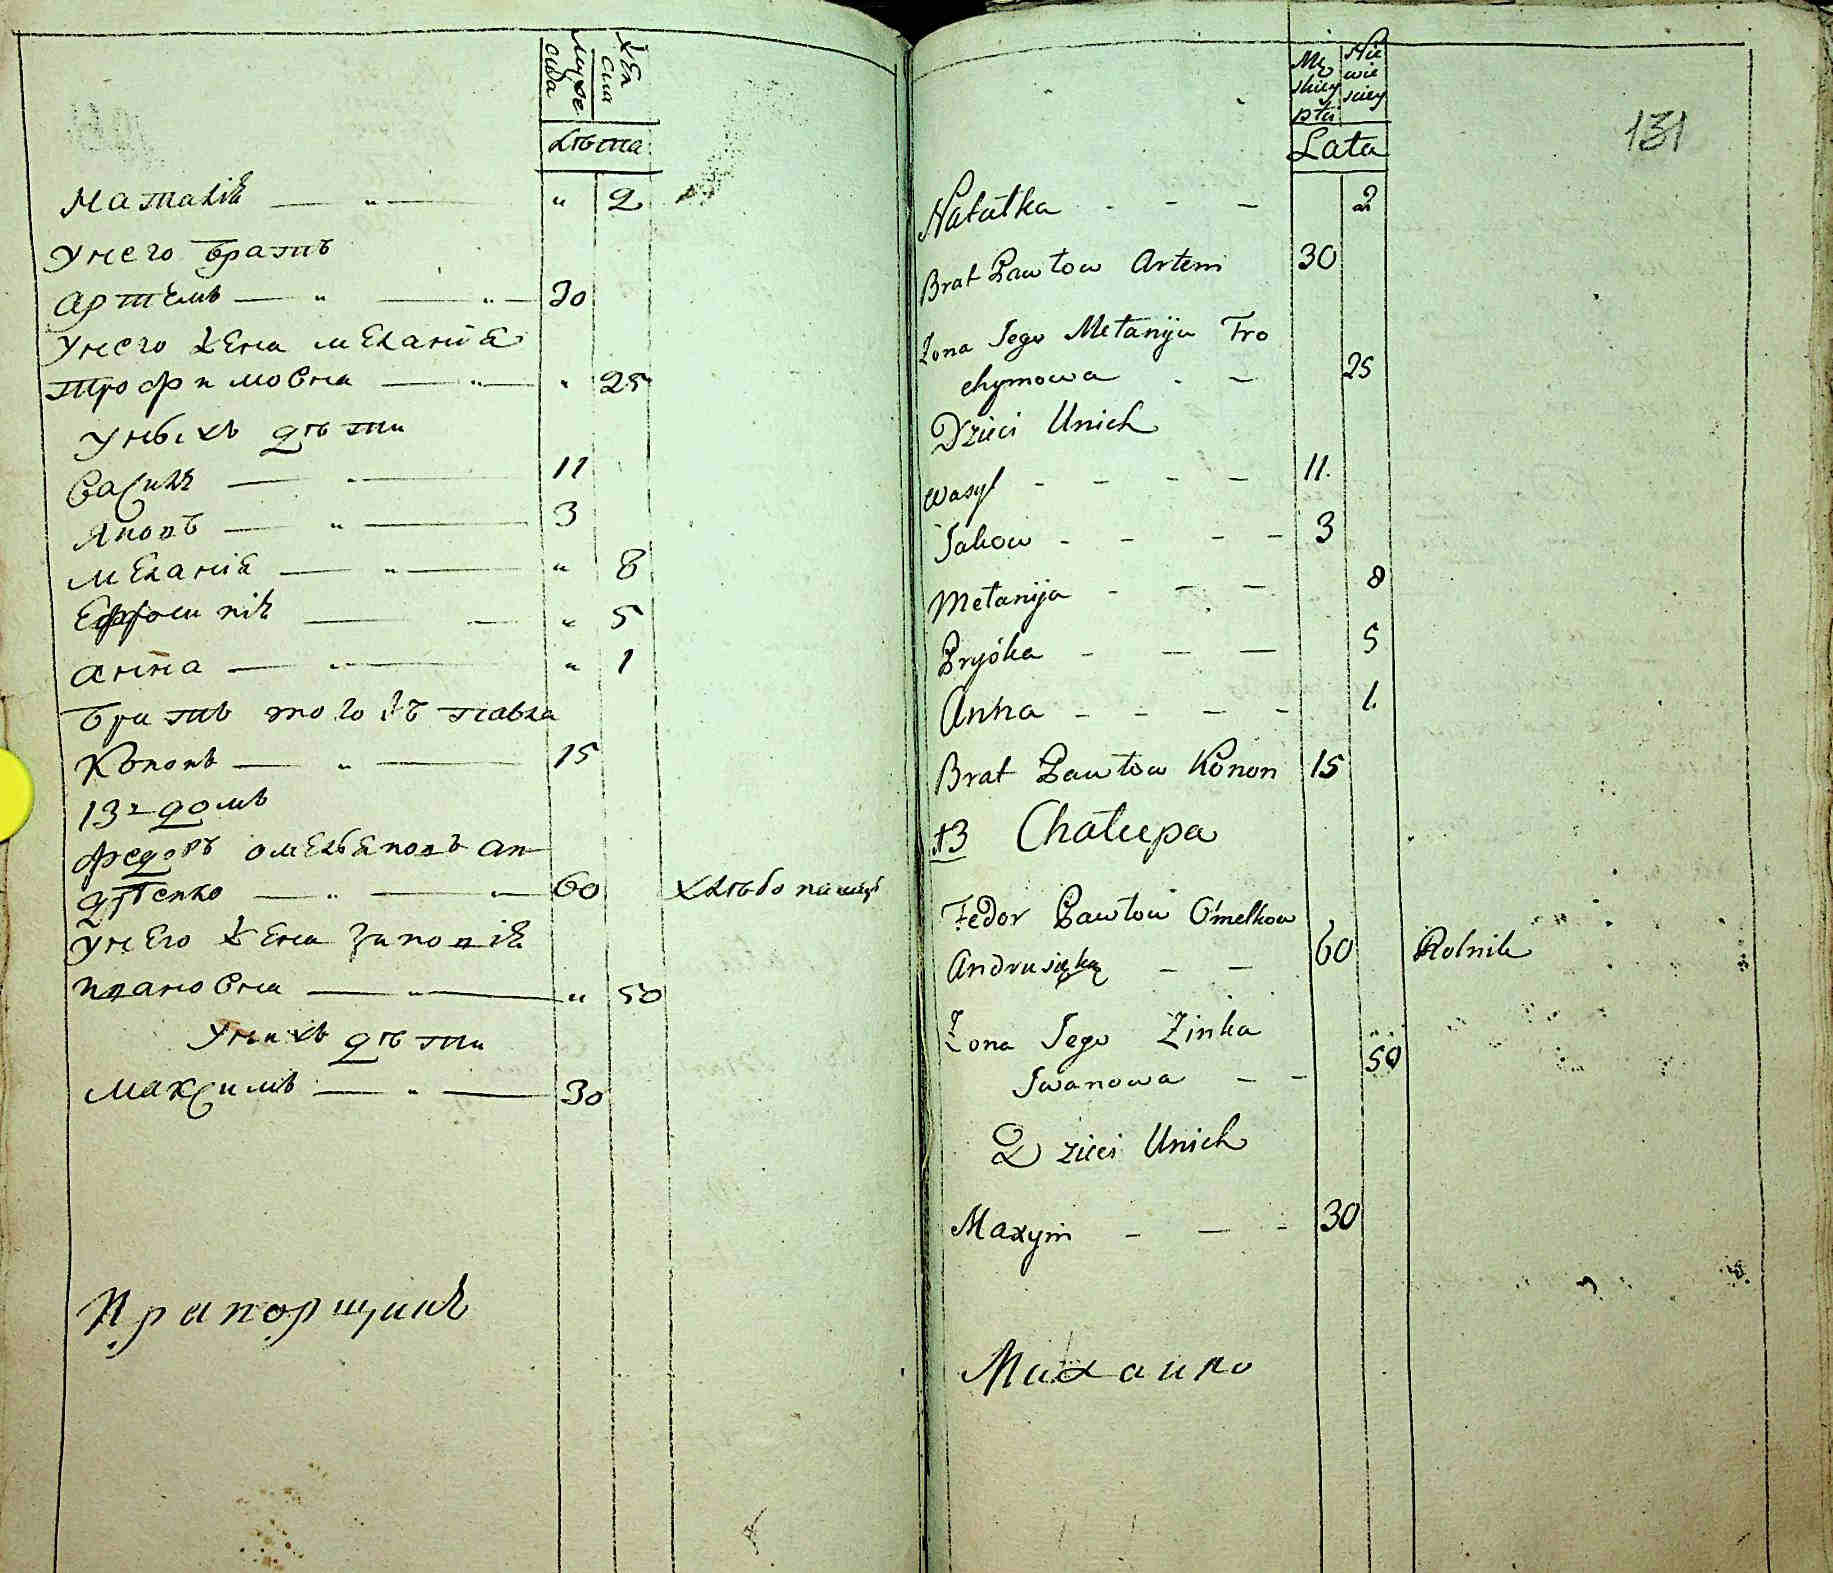 Мужеска
Женска
Лѣта
Наталія — „ — „ 2
Унего братъ
Артемъ — „ — „ — 30
Унего жена Меланія
Трофимовна — „ — „ 25
Унихъ дѣти
Василь — „ — 11
Яковъ — „ — 3
Меланія — „ — „ 8
Ефросинія — — „ 5
Анна — „ — „ 1
Братъ того жъ Павла
Кононъ — „ — 15
13 домъ
Федоръ Омельяновъ Ан
— „ — „ — 60 хлѣбопашецъ
Унего жена Зиновія
Ивановна — „ — „ 50
Унихъ дѣти
Максимъ — „ — 30
Прапорщикъ
Męskiey płci
Niewieściey
Lata
131
Natałka - - - 2
Brat Pawłow Artem 30
Żona Jego Mełanija Tro
chymowa - - 25
Dzieci Unich
Wasyl - - - - 11.
Jakow - - - - 3
Mełanija - - - 8
Pryśka - - - 5
Anna - - - - 1.
Brat Pawłow Konon 15
13 Chałupa
Fedor Pawłow Omelkow
- - 60 Rolnik
Żona Jego Zinka
Iwanowa - - 50
Dzieci Unich
Maxym - - - 30